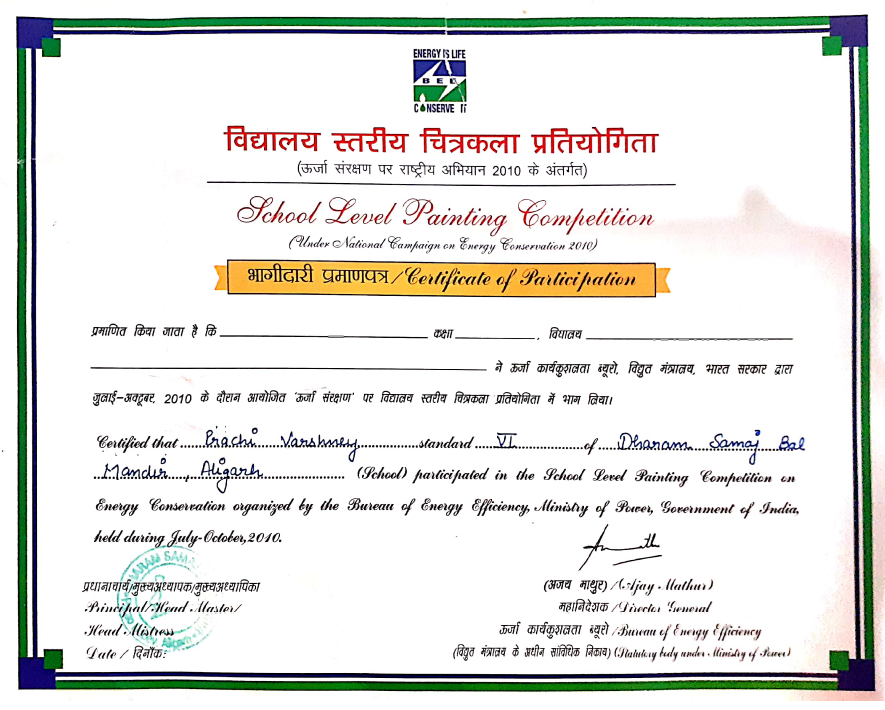 ENERGY IS LIFE
BEE
CONSERVE IT
विद्यालय स्तरीय चित्रकला प्रतियोगिता
(ऊर्जा संरक्षण पर राष्ट्रीय अभियान 2010 के अंतर्गत)
School Level Painting Competition
(Under National Campaign on Energy Conservation 2010)
भागीदारी प्रमाणपत्र/Certificate of Participation
प्रमाणित किया जाता है कि कक्षा , विद्यालय
ने ऊर्जा कार्यकुशलता ब्यूरो, विद्युत मंत्रालय, भारत सरकार द्वारा
जुलाई-अक्टूबर, 2010 के दौरान आयोजित 'ऊर्जा संरक्षण' पर विद्यालय स्तरीय चित्रकला प्रतियोगिता में भाग लिया।
Certified that Prachi Varshney standard VI of Dharam Samaj Bal
Mandir, Aligarh (School) participated in the School Level Painting Competition on
Energy Conservation organized by the Bureau of Energy Efficiency, Ministry of Power, Government of India,
held during July-October,2010.
प्रधानाचार्य/मुख्यअध्यापक/मुख्यअध्यापिका
Principal/Head Master/
Head Mistress
Date / दिनाँक:
(अजय माथुर) /(Ajay Mathur)
महानिदेशक /Director General
ऊर्जा कार्यकुशलता ब्यूरो /Bureau of Energy Efficiency
(विद्युत मंत्रालय के अधीन सांविधिक निकाय) (Statutory body under Ministry of Power)